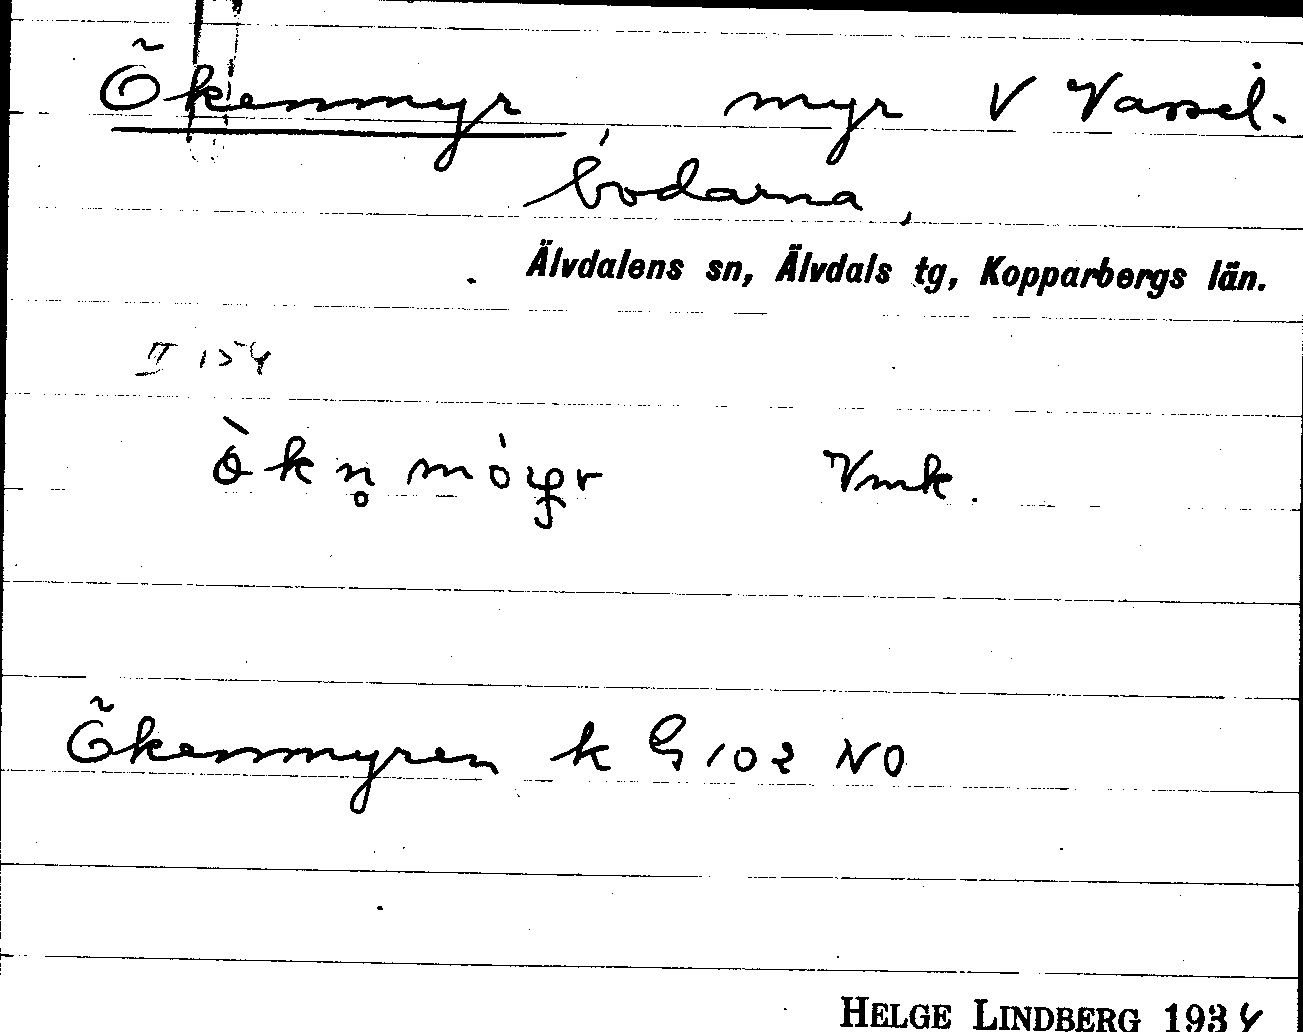 Ökenmyr, myr V Vassel-
bodarna,
Älvdalens sn, Älvdals tg, Kopparbergs län.
II 154
Vmk.
Ökenmyren k G 102 NO
HELGE LINDBERG 1934